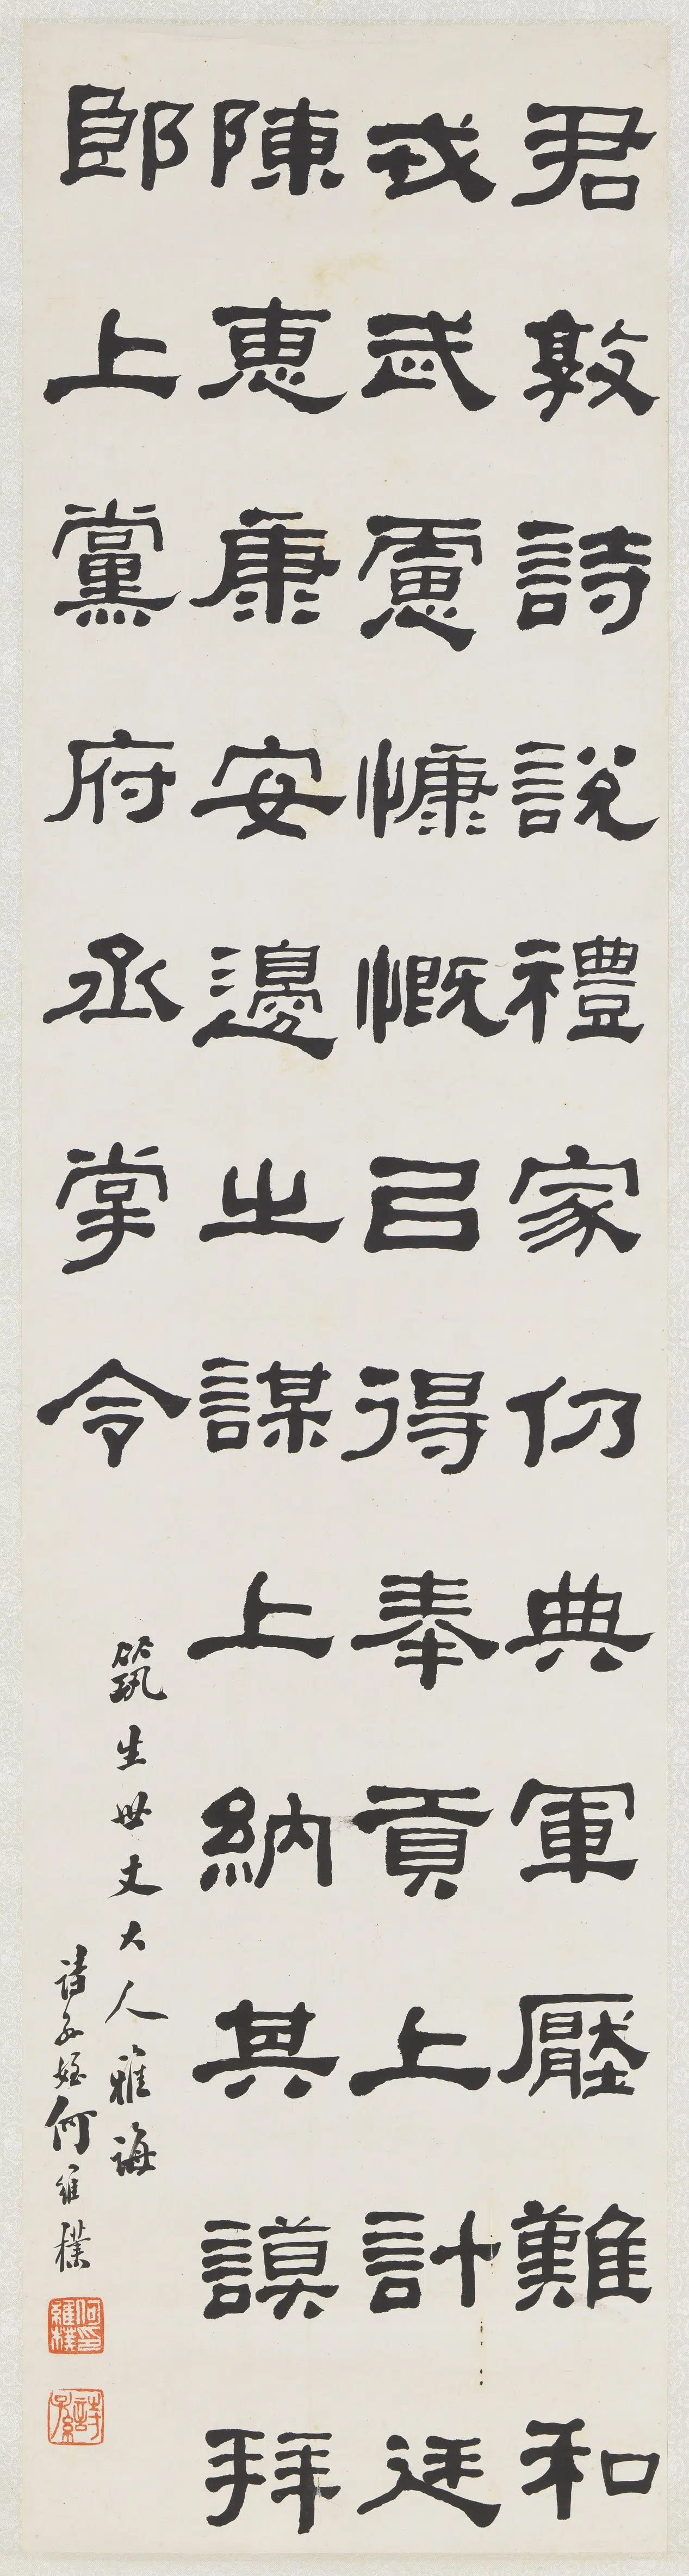 君敦詩說禮家仍典軍壓難和
戎武慮慷慨㠯得奉貢上計廷
陳惠康安邊之謀上納其謨拜
郎上黨府丞掌令
筑生世丈大人雅誨
詩孫姪何維樸
何印維樸
詩孫